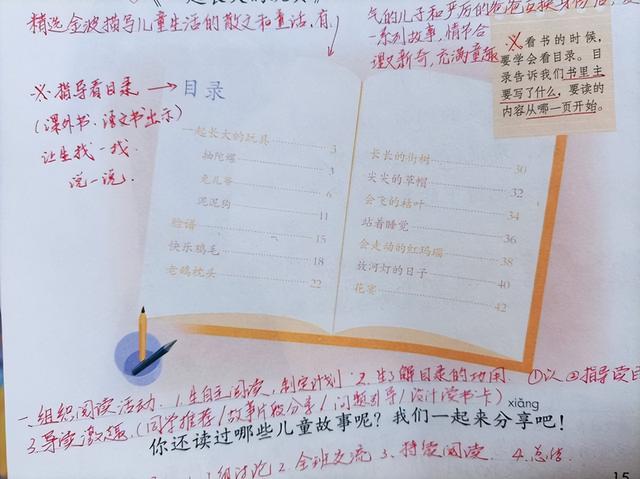 精选金波描写儿童生活的散文和童话,有
一系列故事,情节合
理又新奇,充满童趣
※看书的时候,
要学会看目录。目
录告诉我们书里主
要写了什么,要读的
内容从哪一页开始。
※指导看目录→
(课外书、语文书出示)
让生找一找.
说一说.
目录
一起长大的玩具 3
抽陀螺 3
兔儿爷 6
泥泥狗 11
脸谱 15
快乐鸡毛 18
老鸱枕头 22
长长的街树 30
尖尖的草帽 32
会飞的枯叶 34
站着睡觉 36
会走动的红玛瑙 38
放河灯的日子 40
花宴 42
一.组织阅读活动.1.生自主阅读,制定计划 2.生了解目录的功用.
3.导读激趣.(同学推荐/故事片段分享/问题引导/设计读书卡)
xiǎng
你还读过哪些儿童故事呢?我们一起来分享吧!
1.小组讨论 2.全班交流 3、持续阅读. 4.总结
15